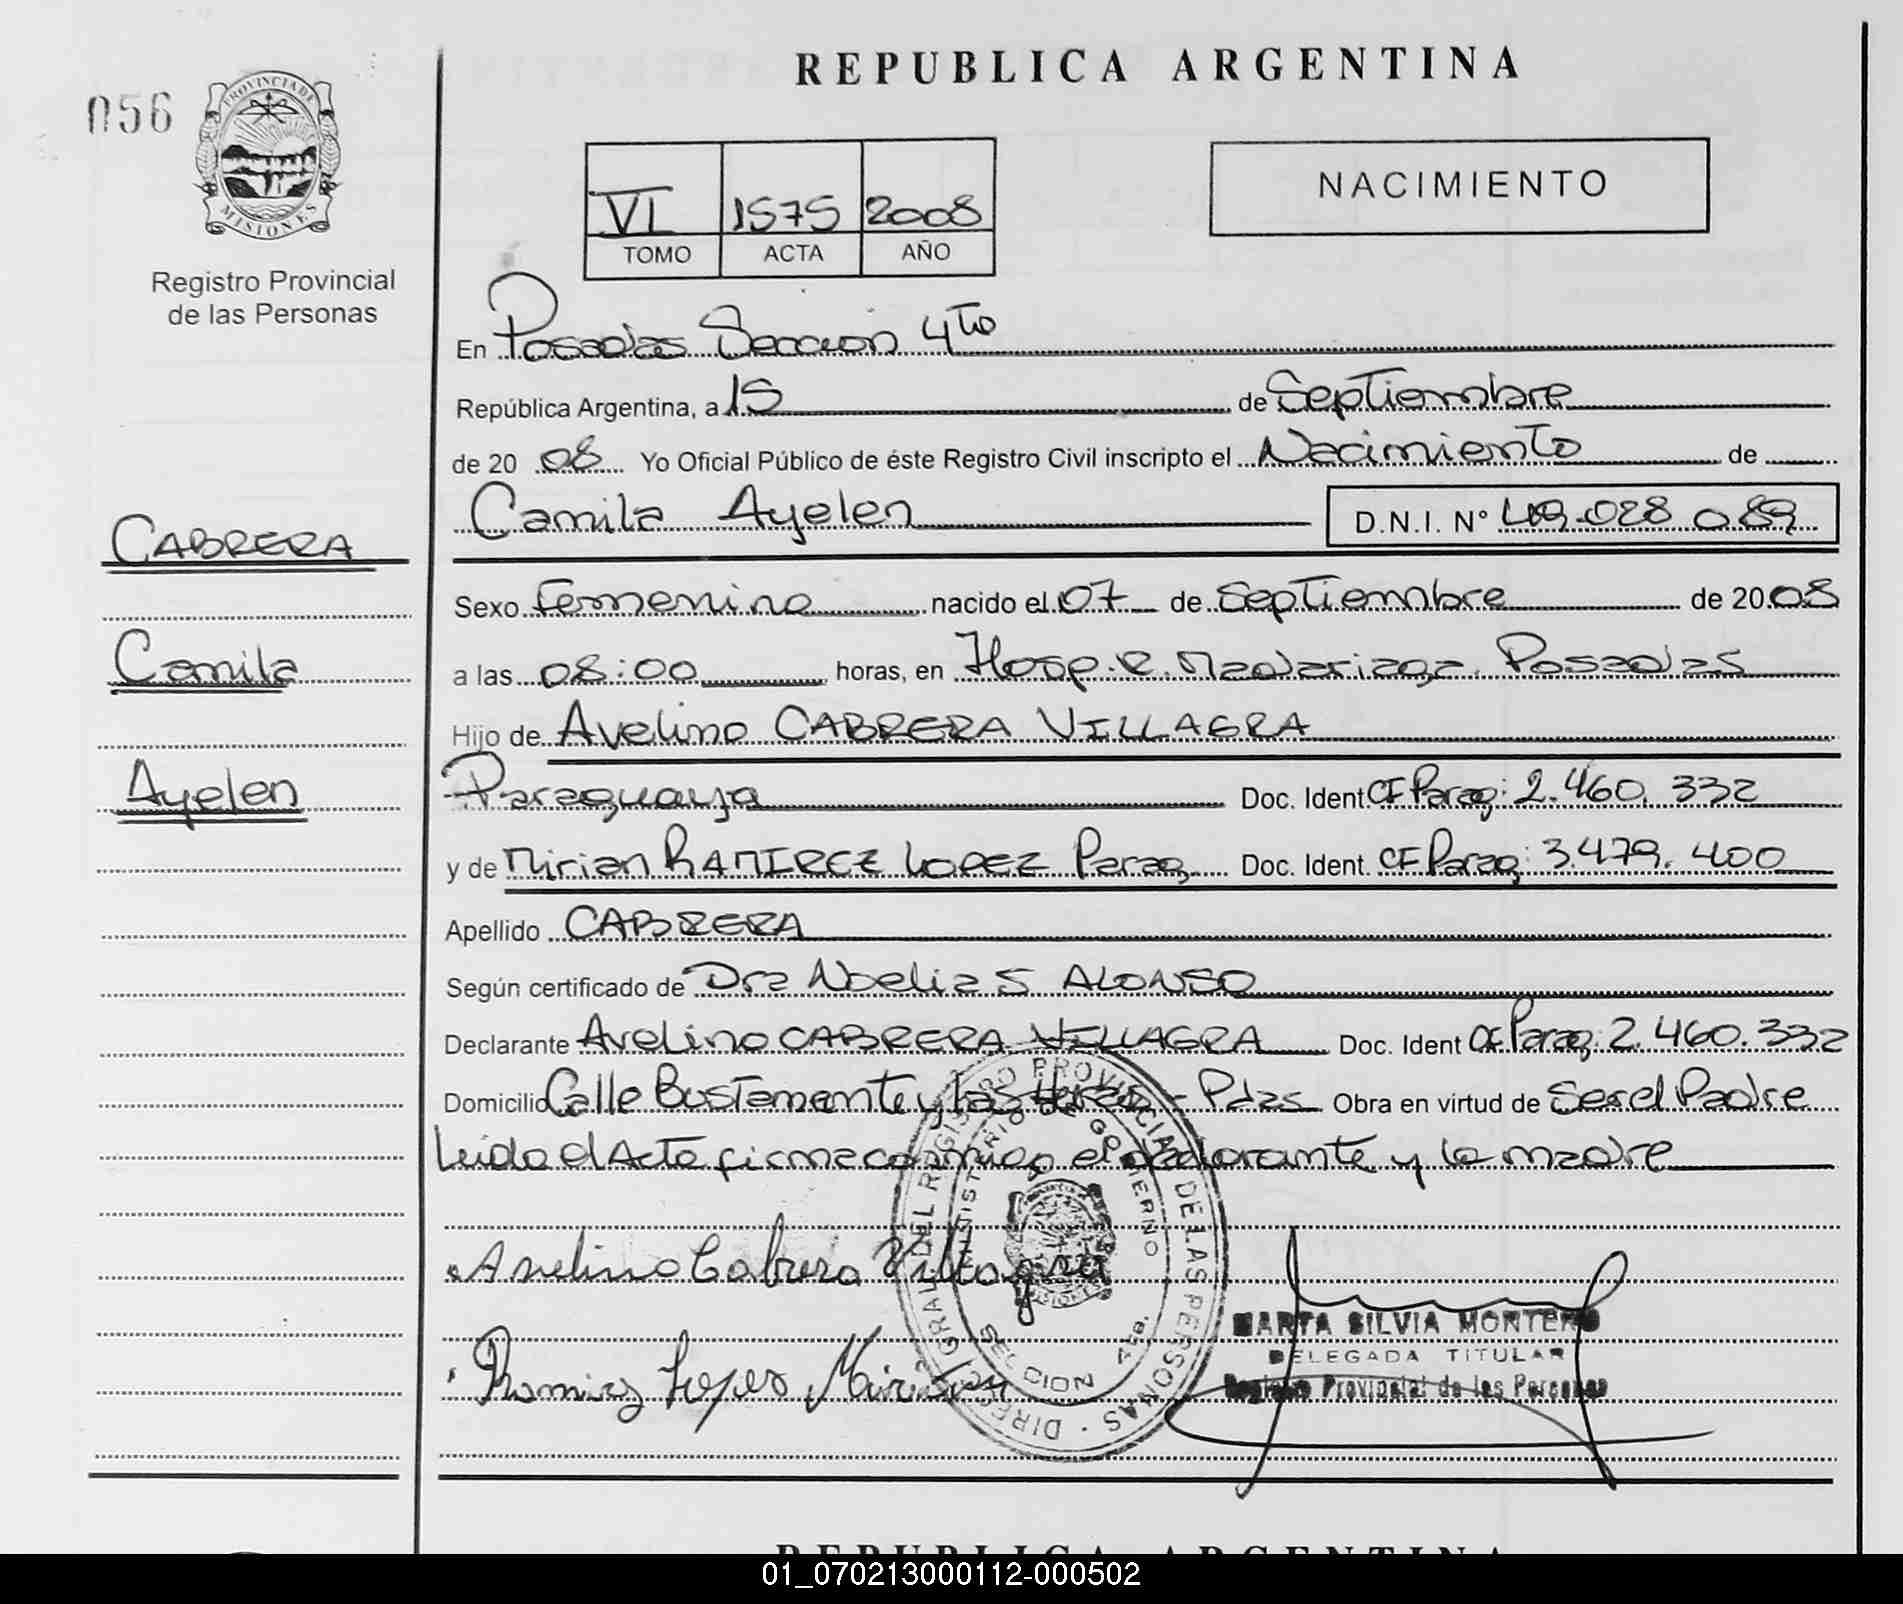 REPUBLICA ARGENTINA
056
PROVINCIA DE MISIONES
Registro Provincial
de las Personas
VI 1575 2008
TOMO ACTA AÑO
NACIMIENTO
En Posadas Sección 4to
República Argentina, a 15 de Septiembre
de 2008 Yo Oficial Público de éste Registro Civil inscripto el Nacimiento de
Camila Ayelen D.N.I. N° 49.028.089
CABRERA
Camila
Ayelen
Sexo Femenino nacido el 07 de Septiembre de 2008
a las 08:00 horas, en Hosp. R. Madariaga. Posadas
Hijo de Avelino CABRERA VILLAGRA
Paraguaya Doc. Ident CI Parag: 2.460.332
y de Mirian RAMIREZ LOPEZ Parag. Doc. Ident. CI Parag: 3.479.400
Apellido CABRERA
Según certificado de Dra Noelia S ALONSO
Declarante Avelino CABRERA VILLAGRA Doc. Ident CI Parag: 2.460.332
Domicilio Calle Bustamente y Las - Pdas Obra en virtud de Ser el Padre
Leida el Acta firma conmigo el declarante y la madre
Avelino Cabrera Villagra
Ramirez Lopez Mirian
DIREC. GRAL. DEL REGISTRO PROVINCIAL DE LAS PERSONAS
MINISTERIO DE GOBIERNO
SECCION 4ta.
MISIONES
MARTA SILVIA MONTERO
DELEGADA TITULAR
Registro Provincial de las Personas
REPUBLICA ARGENTINA
01_070213000112-000502